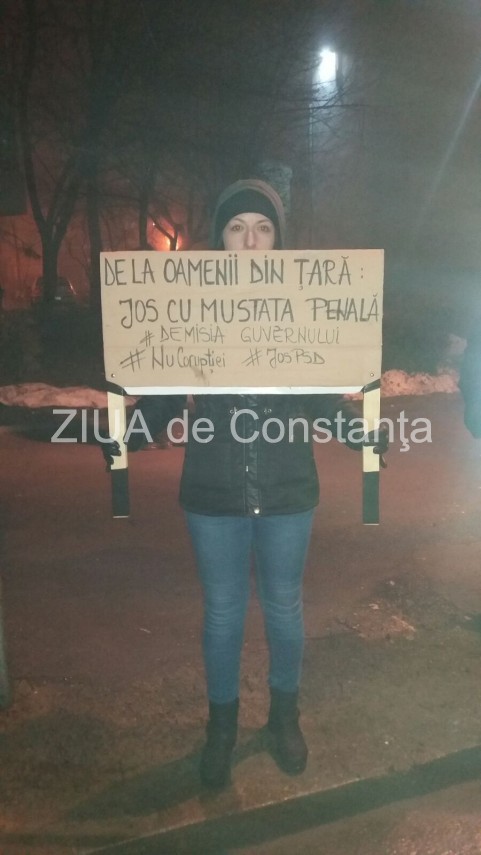 DE LA OAMENII DIN ȚARĂ :
JOS CU MUSTATA PENALĂ
# DEMISIA GUVERNULUI
# NU Corupției # JOS PSD
ZIUA de Constanţa